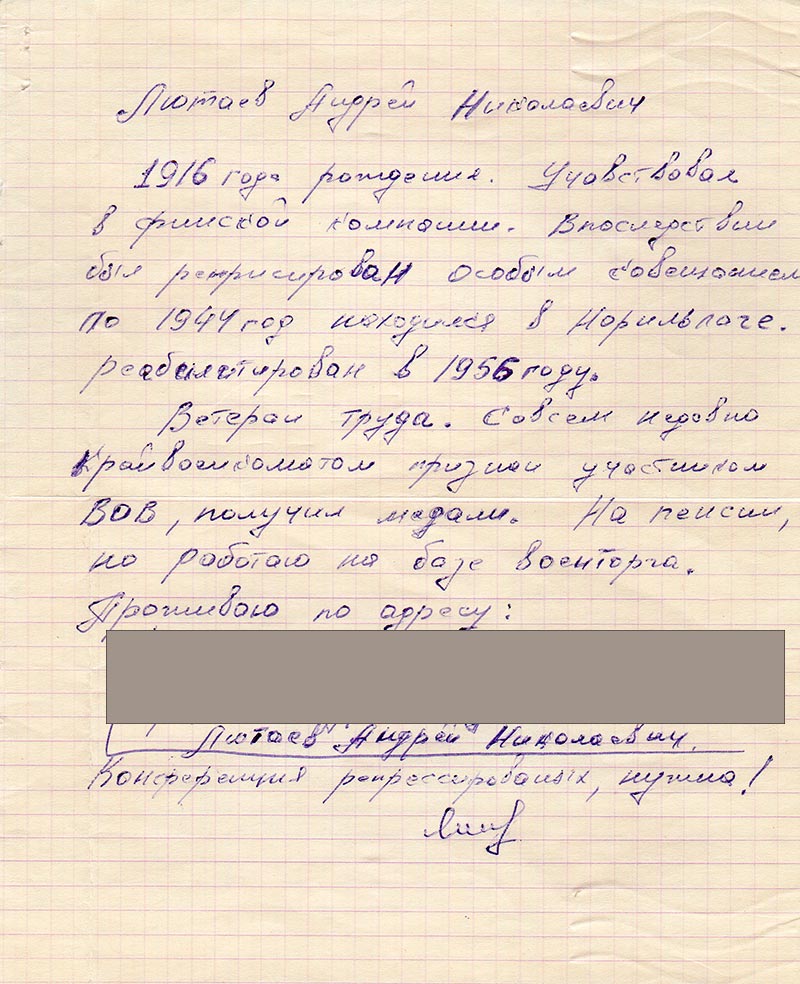 Лютаев Андрей Николаевич
1916 года рождения. Учавствовал
в финской компании. Впоследствии
был реприсирован Особым совещанием
по 1944 год находился в Норильлаге.
реабилитирован в 1956 году.
Ветеран труда. Совсем недавно
Крайвоенкоматом признан участником
ВОВ, получил медали. На пенсии,
но работаю на базе военторга.
Проживаю по адресу:
Лютаев Андрей Николаевич.
Конференция репрессированых, нужна!